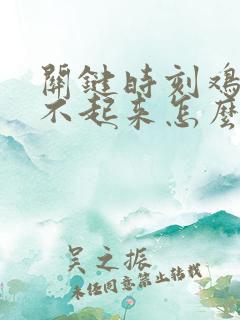 關鍵時刻鸡
不起来怎麽
吴之振
未经同意禁止转载